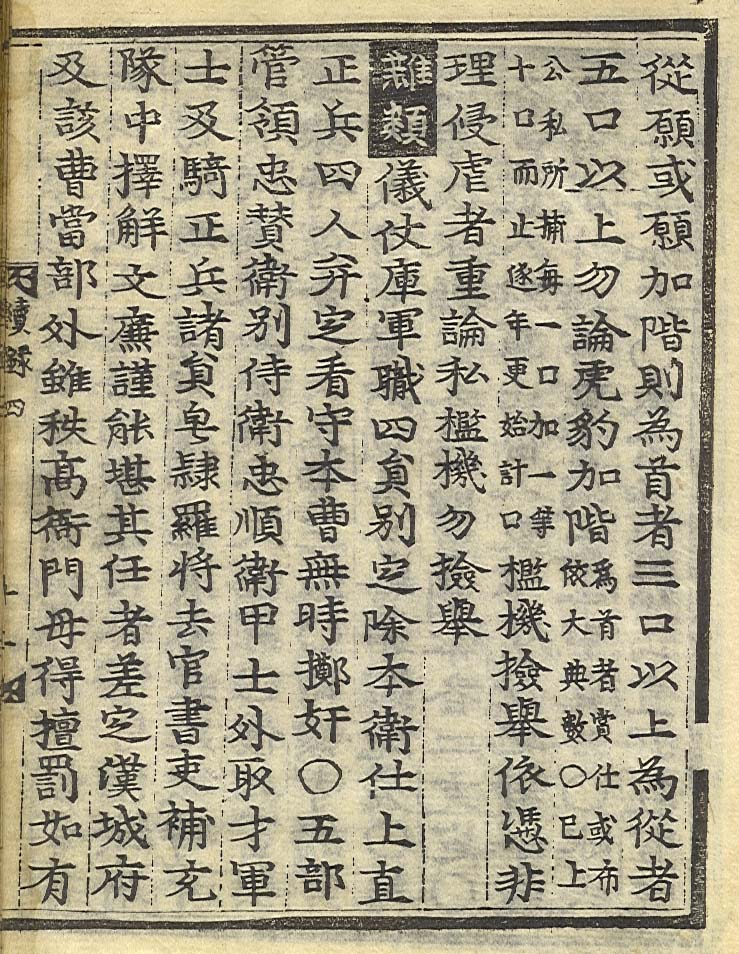 從願或願加階則為首者三口以上為從者
五口以上勿論虎豹加階為首者賞仕或布依大典數〇已上
公私所捕每一口加一等十口而止逐年更始計口檻機撿舉依憑非
理侵虐者重論私檻機勿撿舉
雜類儀仗庫軍職四員別定除本衛仕上直
正兵四人弁定看守本曹無時擲奸〇五部
管領忠贊衛別侍衛忠順衛甲士外取才軍
士及騎正兵諸員皂隷羅將去官書吏補充
隊中擇解文廉謹能堪其任者差定漢城府
及該曹當部外雖秩高衙門毋得擅罰如有
大典續錄四